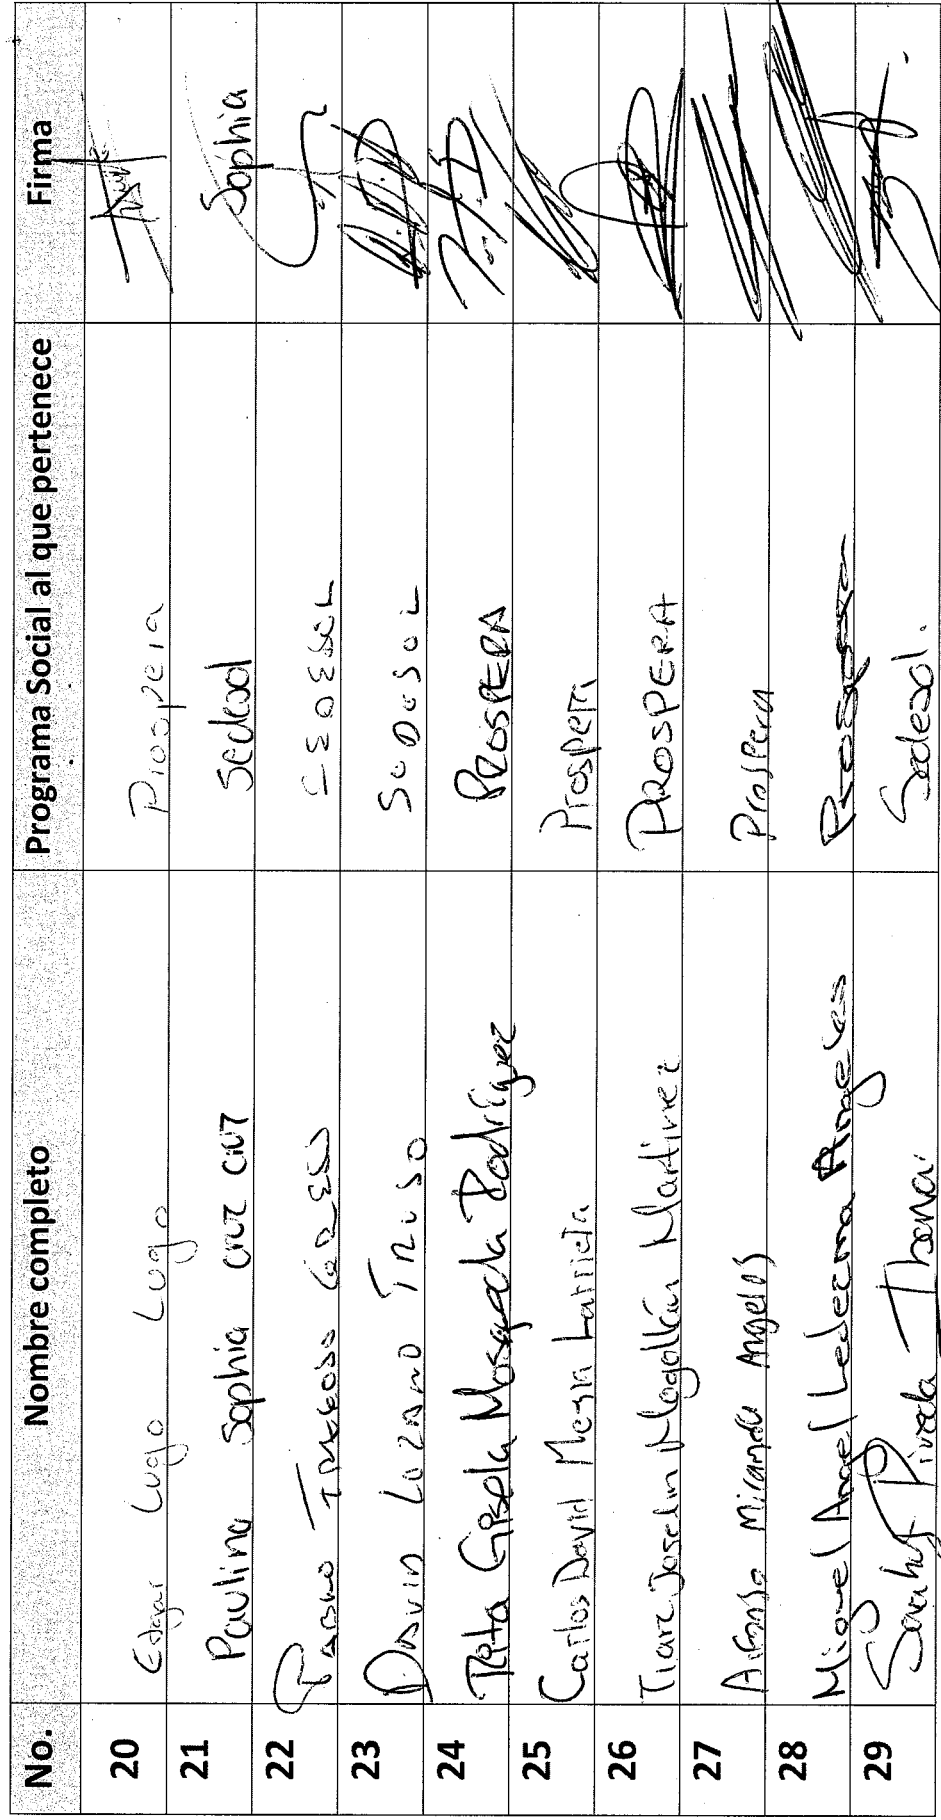 No. Nombre completo Programa Social al que pertenece Firma
20 Edgar Lugo Lugo Prospera
21 Paulina Sophia cruz cruz Sedesol Sophia
22 SEDESOL
23 David Lozano SEDESOL
24 Rita Gisela Mosqueda Rodríguez PROSPERA
25 Carlos David Mejia Larrieta Prospera
26 Tiare Joselin Mogollán Martinez PROSPERA
27 Alfonso Miranda Angeles Prospera
28 Miguel Angel Ledezma Angeles Prospera
29 Sarahy Pineda Sedesol.